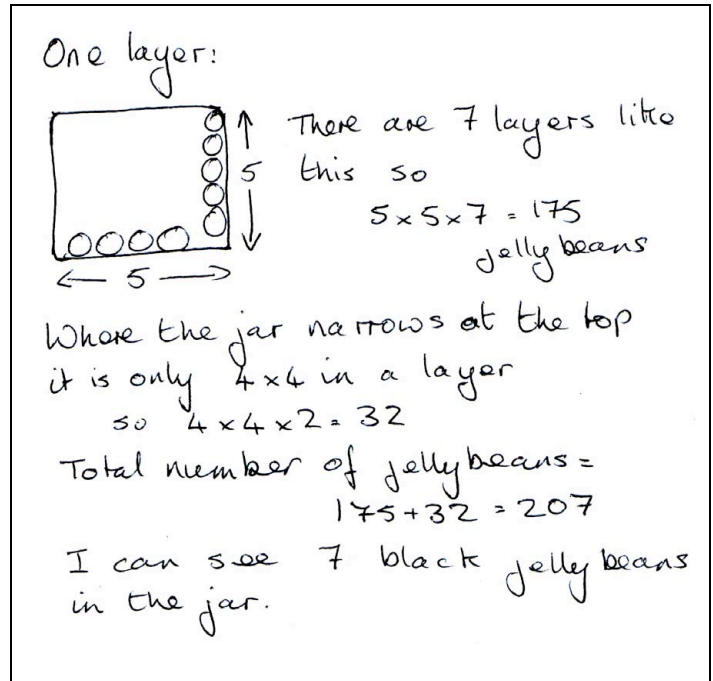 One layer:
There are 7 layers like
5 this so
5 × 5 × 7 = 175
jelly beans
← 5 →
Where the jar narrows at the top
it is only 4 × 4 in a layer
so 4 × 4 × 2 = 32
Total number of jellybeans =
175 + 32 = 207
I can see 7 black jelly beans
in the jar.